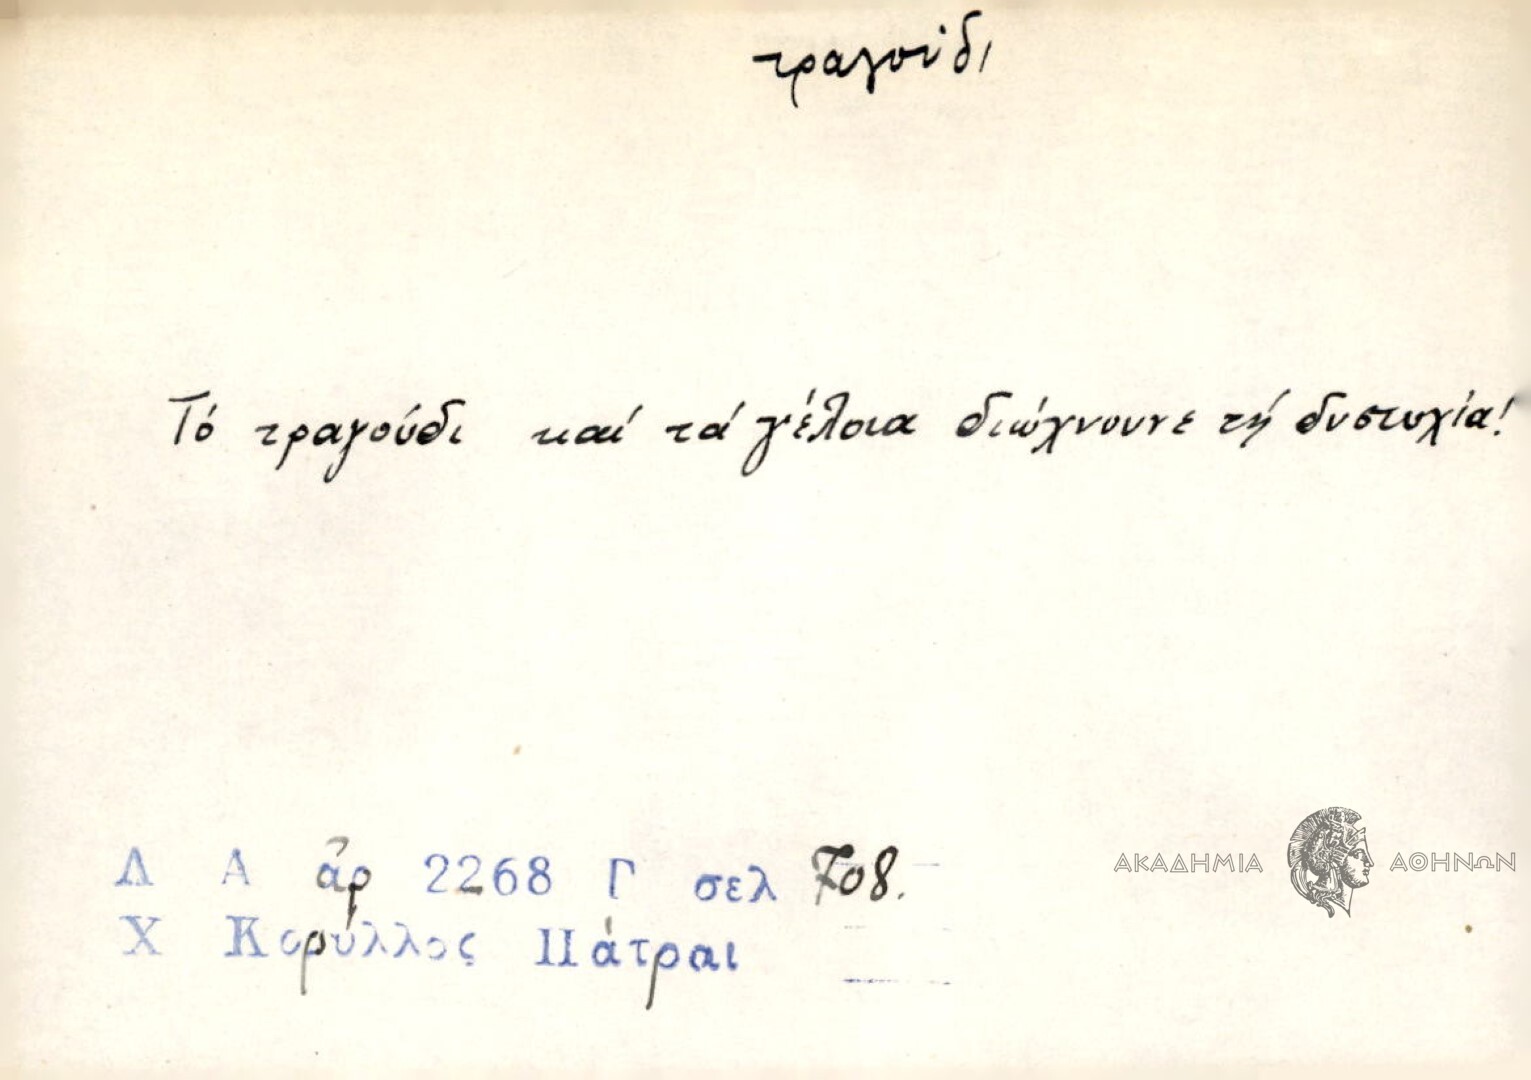 τραγούδι
Τό τραγούδι καί τά γέλοια διώχνουνε τή δυστυχία!
Λ Α ἀρ 2268 Γ σελ 708.
Χ Κορύλλος Πάτραι
ΑΚΑΔΗΜΙΑ ΑΘΗΝΩΝ